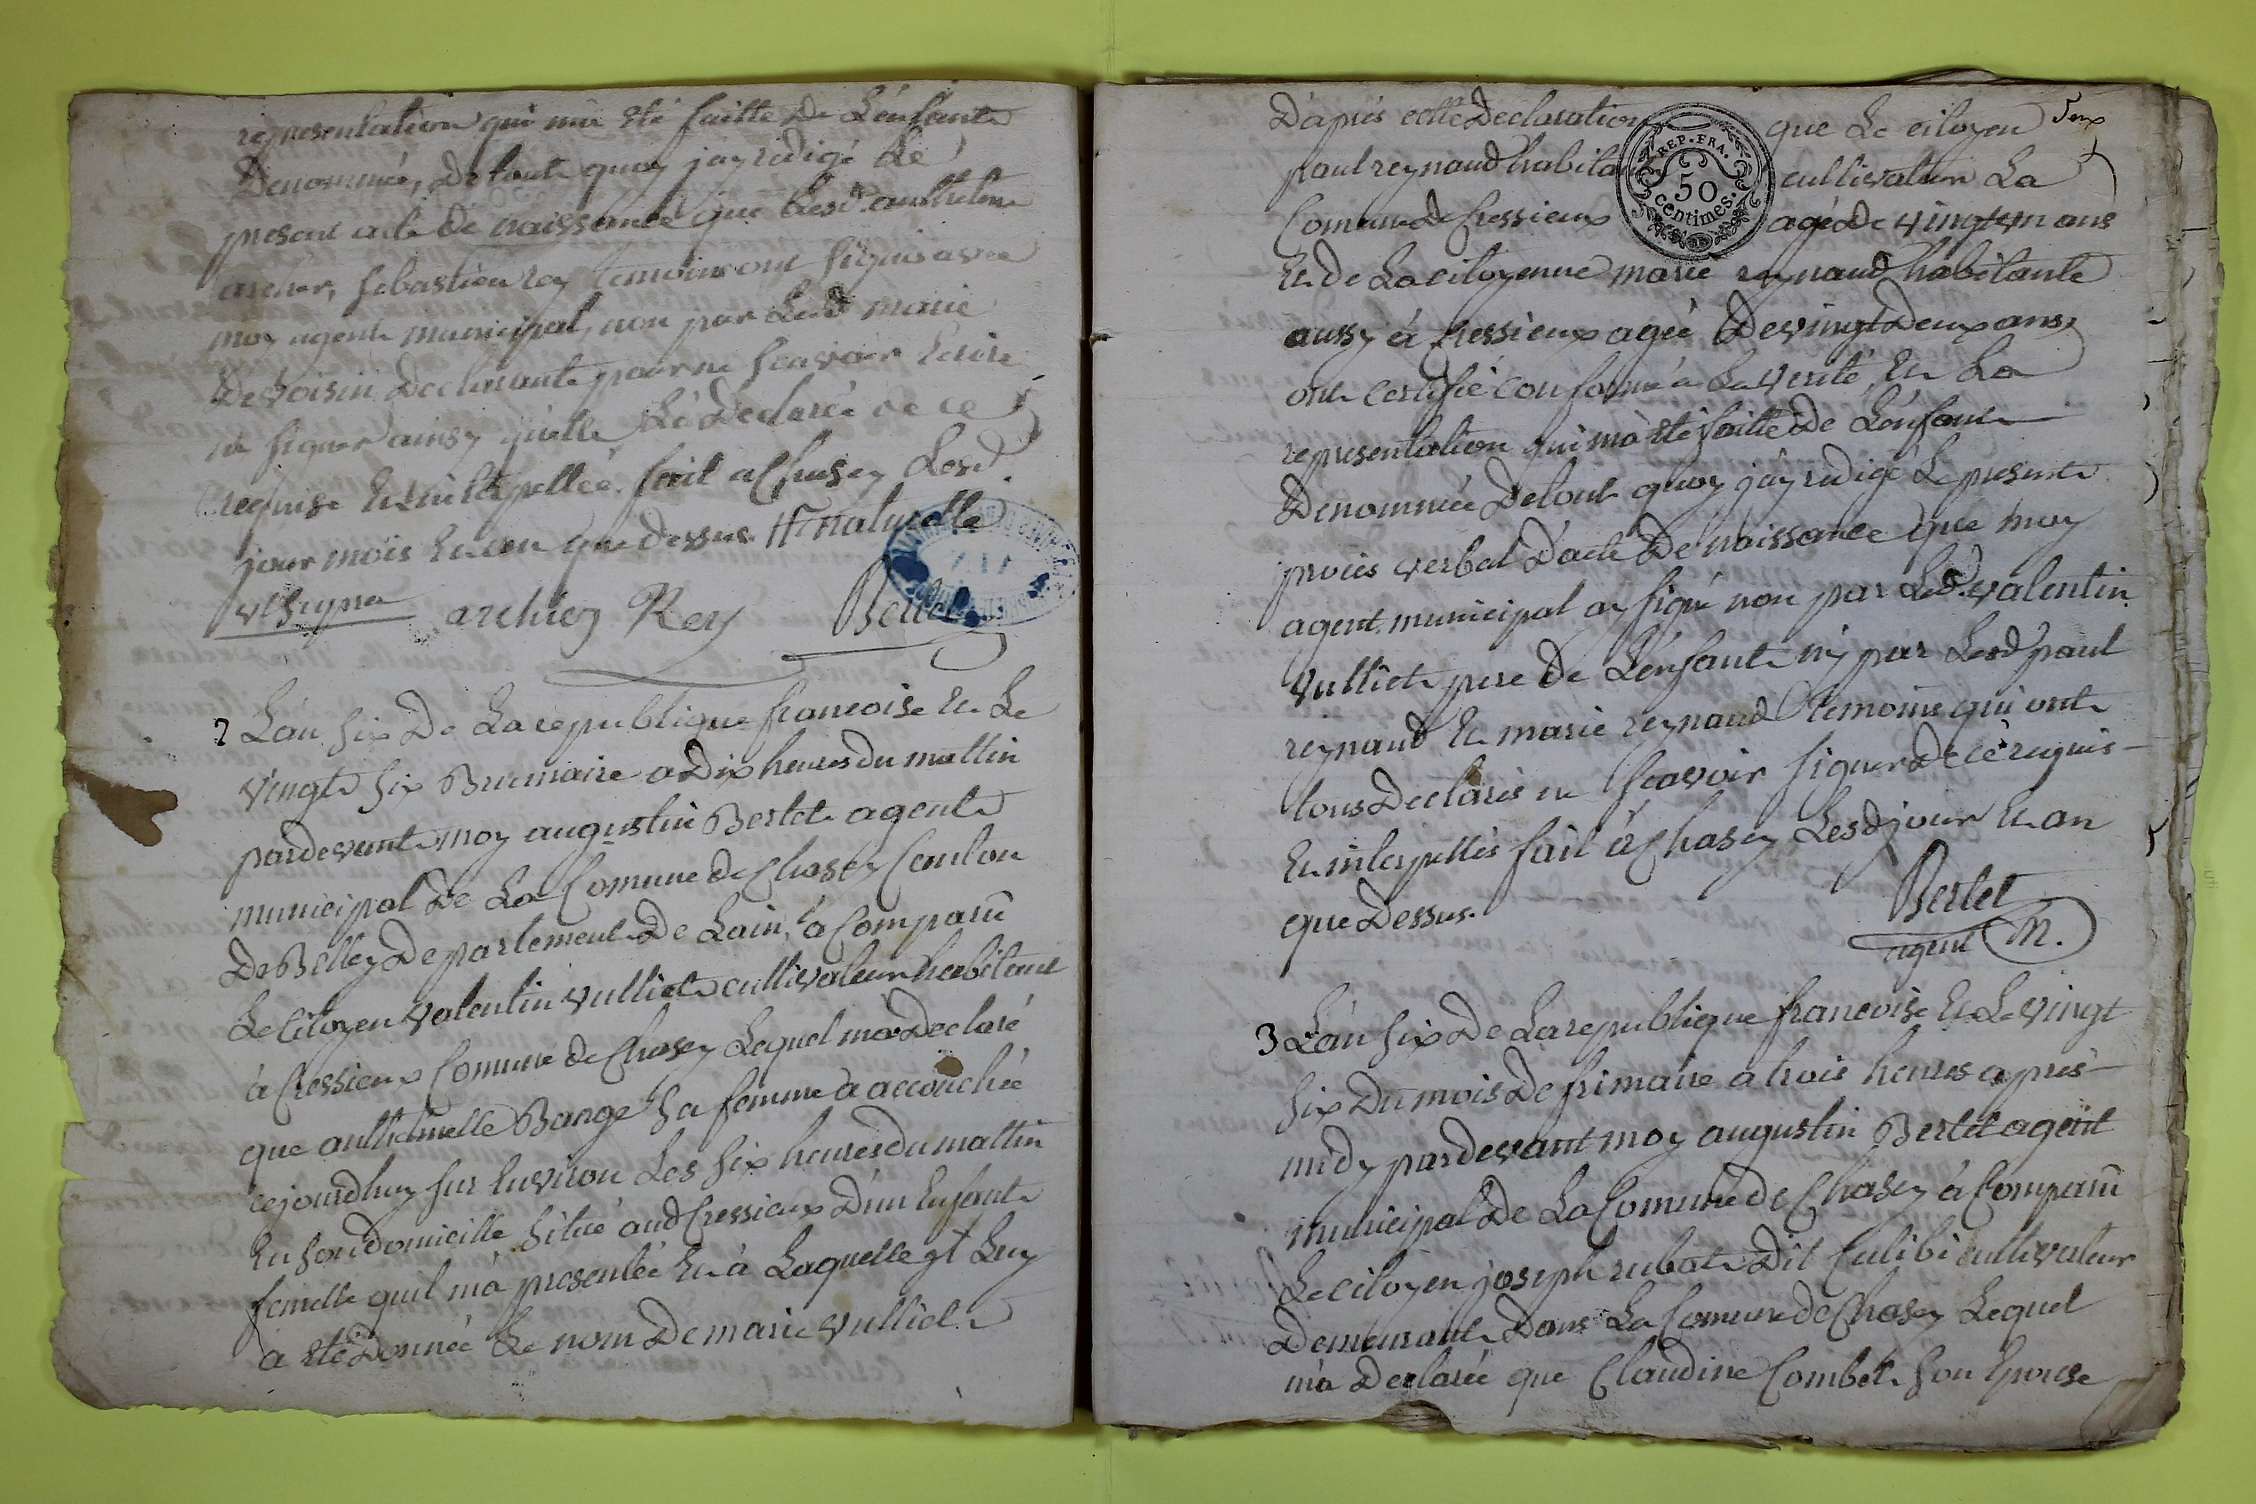 representation qui ma été faitte de L'enfant
Denommée, De tout quoy j'ay redigé Le
present acte de naissance que Lesd. anthelme
archer, sebastien rey temoins ont signés avec
moy agent municipal, non par Lad. marie
Devoisin Declarante pour ne scavoir Ecrire
ni signer ainsy quelle L'a Declarée de ce
requise Et interpellée. fait a Chasey Lesd.
jour mois Et an que dessus. naturelle
archier Rey Bertet
2 L'an six De La republique francoise Et Le
vingt six Brumaire a Dix heures du mattin
pardevant moy augustin Bertet agent
municipal de La Comune de Chasey Canton
De Belley Departement De Lain, a Comparû
Le Citoyen valentin vulliet cultivateur habitant
à Cressieux Comune de Chasey Lequel m'a Declaré
que anthelmelle Barge sa femme a accouchée
cejourdhuy sur Environ Les six heures du mattin
En son domicille situé aud Cressieux D'un Enfant
femelle quil m'a presentée Et à Laquelle
a été Donnée Le nom De marie vulliet
D'après cette Declaration que Le citoyen
paul reynaud habitant cultivateur La
Comune de Cressieux agé de vingt un ans
REP. FRA.
50
centimes.
Et de La citoyenne marie reynaud habitante
aussy à Cressieux agée De vingt Deux ans
ont certifié conforme a La verité, Et La
representation qui m'a été faitte De L'enfant
Denommée De tout quoy j'ay redigé Le present
procès verbal D'acte De naissance que moy
agent municipal ay signé non par Led. valentin
vulliet pere de L'enfant ny par Lesd. paul
reynaud Et marie reynaud temoins qui ont
tous Declarés ne scavoir signer de ce requis
Et interpellés fait à Chasey Lesd jour Et an
que Dessus.
Bertet
agent m.
3 L'an six De La republique francoise Et Le vingt
six Du mois De frimaire a trois heures après
midy pardevant moy augustin Bertet agent
municipal De La Comune de Chasey à Comparû
Le citoyen joseph rubat Dit Culibi cultivateur
Demeurant Dans La Comune de Chasey Lequel
m'a Declarée que Claudine Combet son Epouse